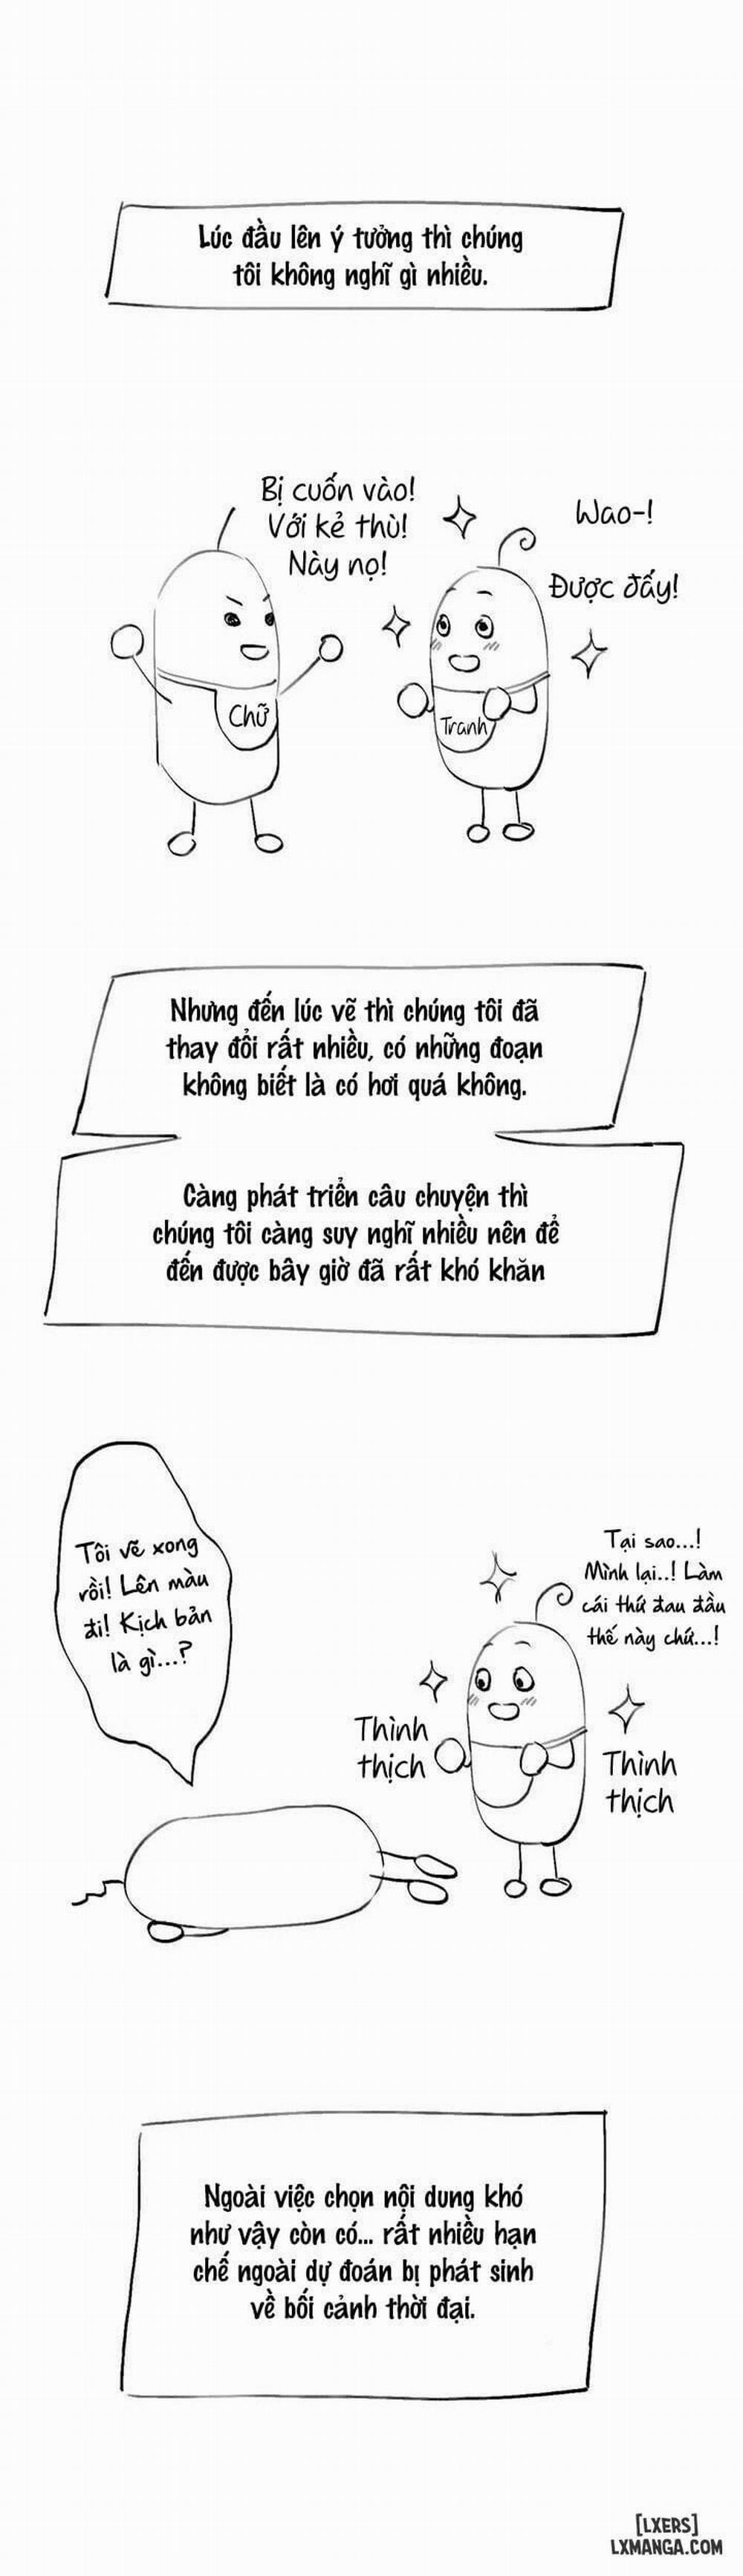 Lúc đầu lên ý tưởng thì chúng
tôi không nghĩ gì nhiều.
Bị cuốn vào!
Với kẻ thù!
Này nọ!
Wao-!
Được đấy!
Chữ
Tranh
Nhưng đến lúc vẽ thì chúng tôi đã
thay đổi rất nhiều, có những đoạn
không biết là có hơi quá không.
Càng phát triển câu chuyện thì
chúng tôi càng suy nghĩ nhiều nên để
đến được bây giờ đã rất khó khăn
Tôi vẽ xong
rồi! Lên màu
đi! Kịch bản
là gì...?
Tại sao...!
Mình lại..! Làm
cái thứ đau đầu
thế này chứ...!
Thình
thịch
Thình
thịch
Ngoài việc chọn nội dung khó
như vậy còn có... rất nhiều hạn
chế ngoài dự đoán bị phát sinh
về bối cảnh thời đại.
[LXERS]
LXMANGA.COM